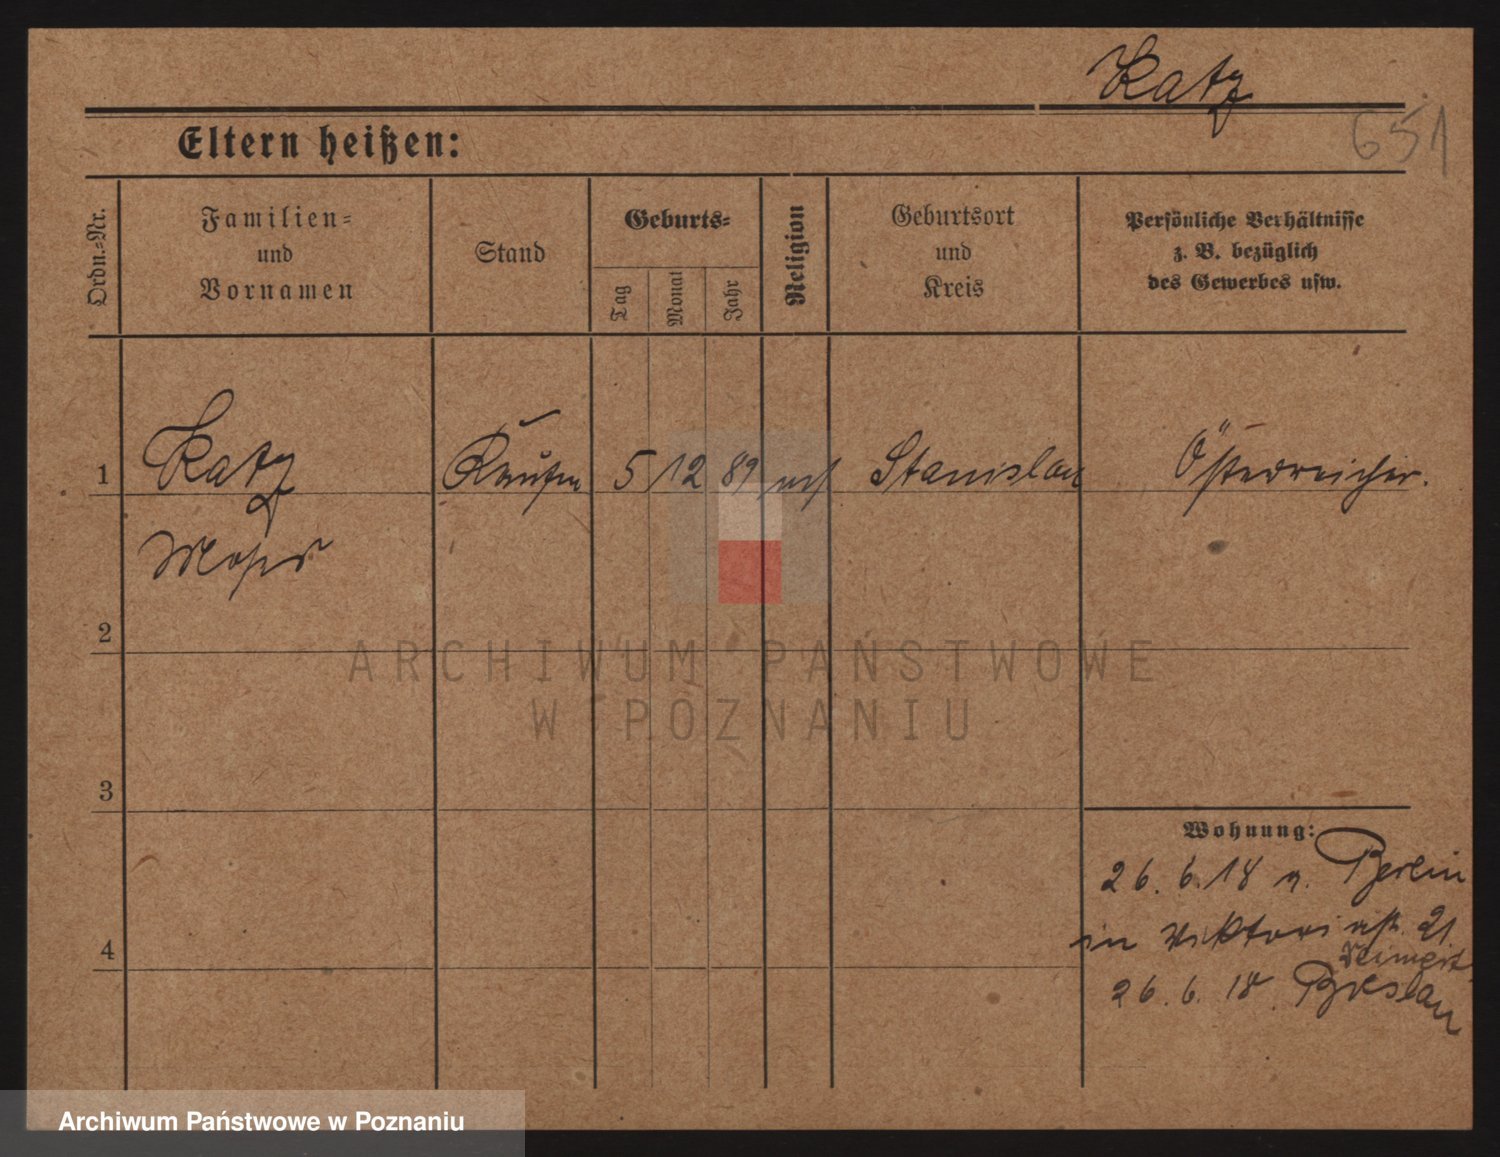 Katz
651
Eltern heißen:
Ordn.=Nr.
Familien=
und
Vornamen
Stand
Geburts=
Tag
Monat
Jahr
Religion
Geburtsort
und
Kreis
Persönliche Verhältnisse
z. B. bezüglich
des Gewerbes usw.
1 Katz Kaufm 5 12 89 Stanislau Österreicher.
Moses
2
ARCHIWUM PAŃSTWOWE
W POZNANIU
3
Wohnung:
26. 6. 18 v. Berlin
in Viktoriastr. 21
4
26. 6. 18 Breslau
Archiwum Państwowe w Poznaniu